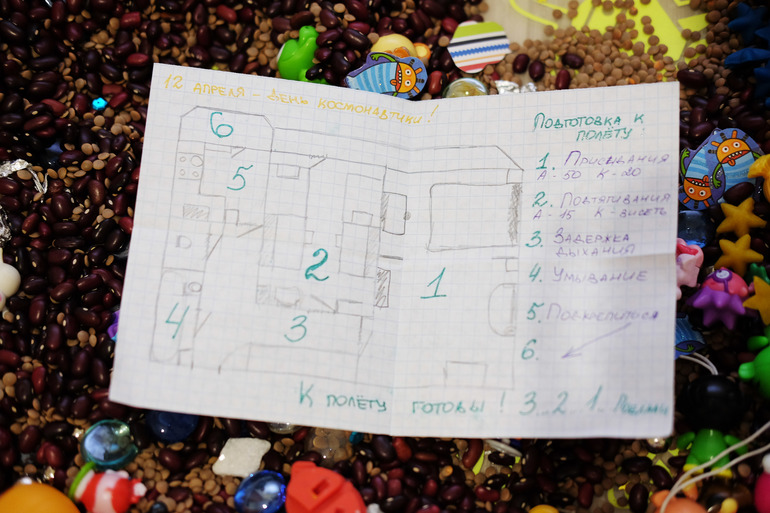 12 АПРЕЛЯ - ДЕНЬ КОСМОНАВТИКИ!
6
5
2
1
3
4
ПОДГОТОВКА К
ПОЛЁТУ:
1. ПРИСЕДАНИЯ
А-50 К-20
2. ПОДТЯГИВАНИЯ
А-15 К-ВИСЕТЬ
3. ЗАДЕРЖКА
ДЫХАНИЯ
4. УМЫВАНИЕ
5. ПОДКРЕПИТЬСЯ
6.
К ПОЛЁТУ ГОТОВЫ! 3..2..1..